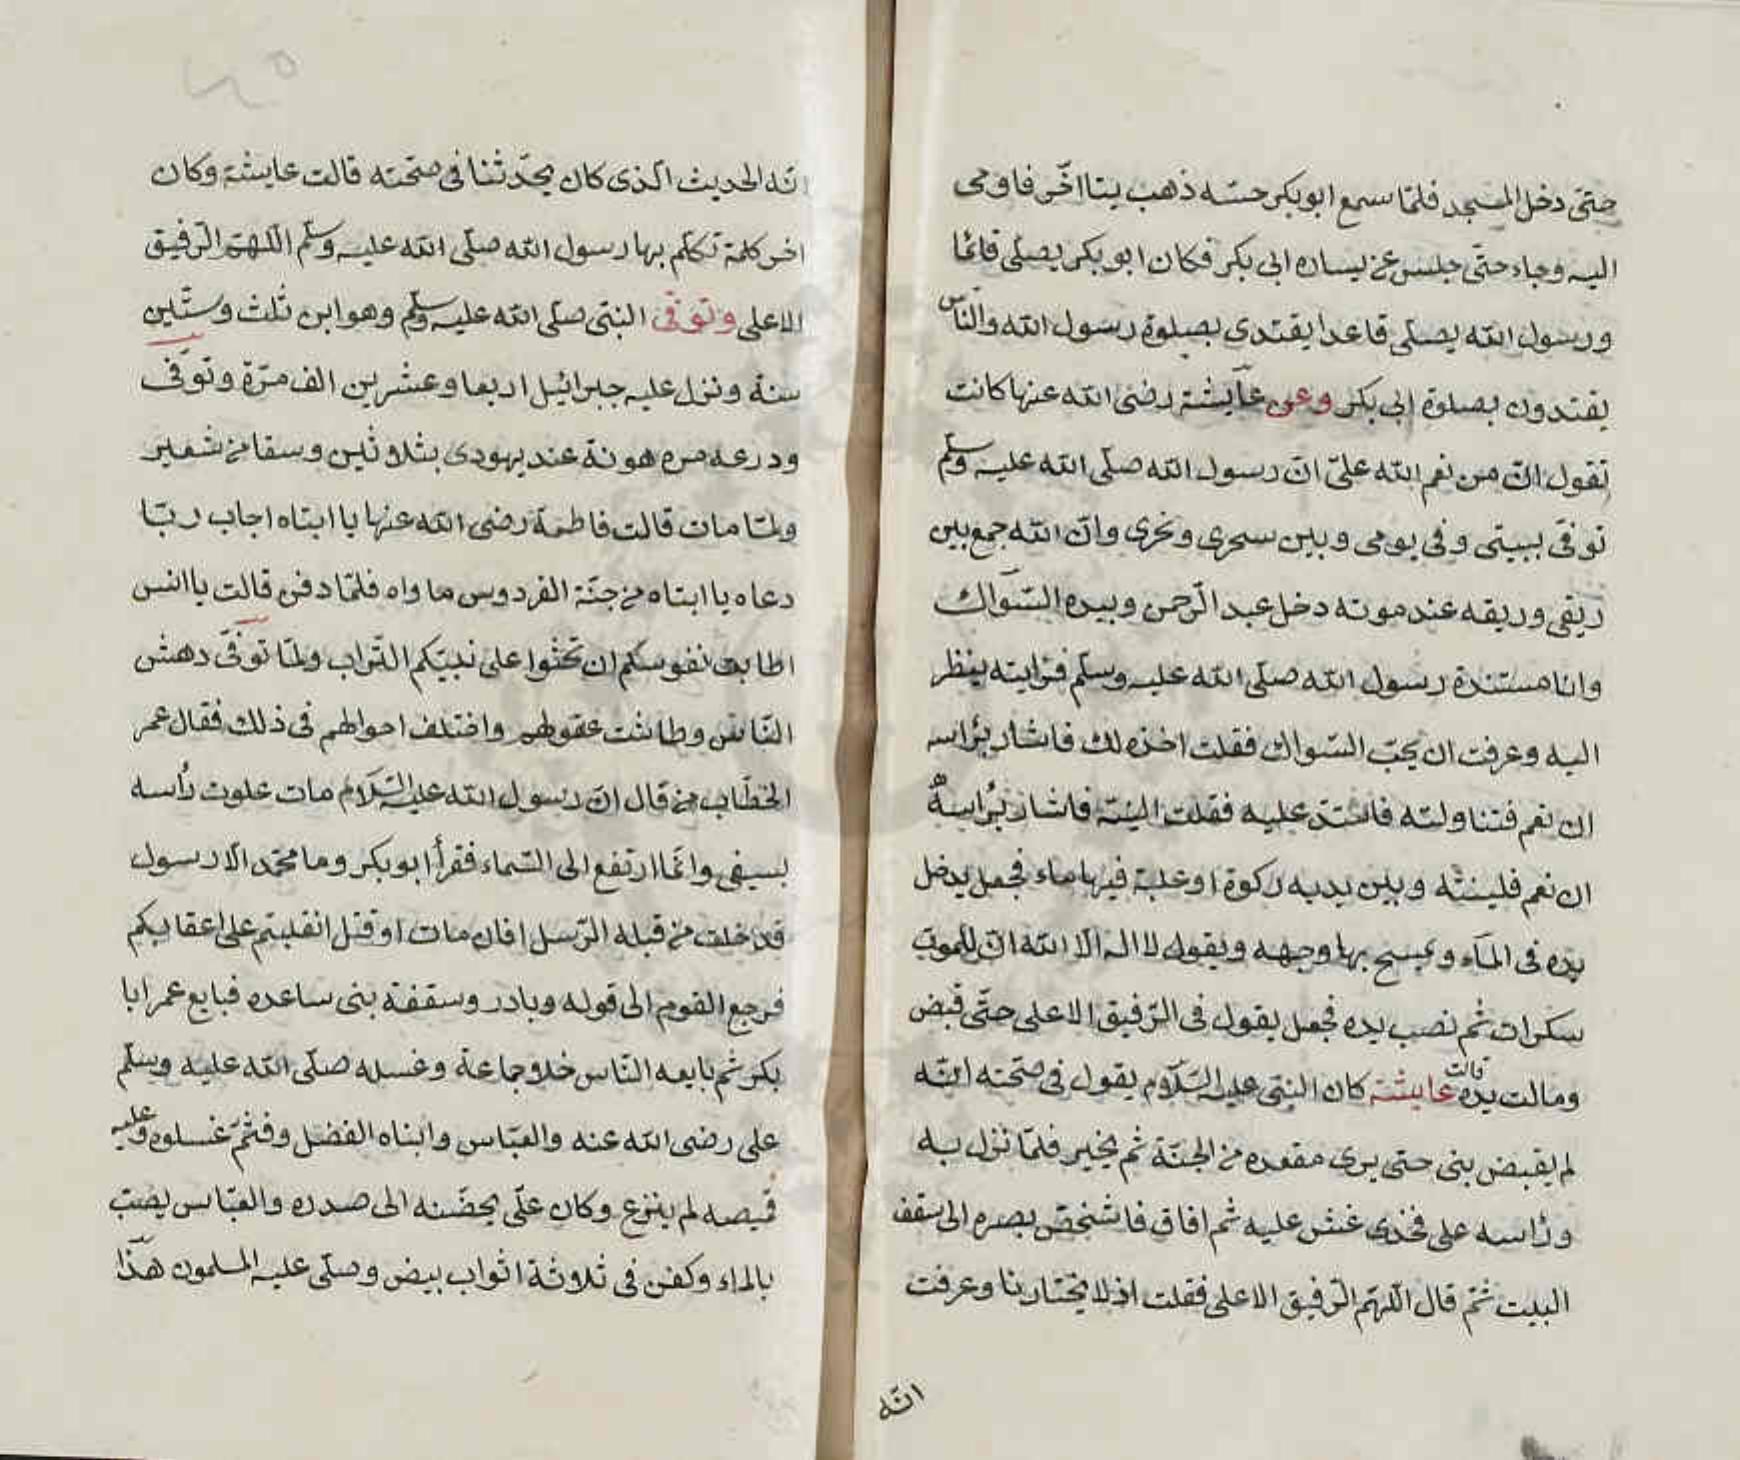 حتى دخل المسجد فلمّا سمع ابو بكر حسّه ذهب يتاخّر فاومى
اليه وجاء حتّى جلس عن يساره ابى بكر فكان ابو بكر يصلّى قائما
ورسول الله يصلّى قاعدا يقتدى بصلوة رسول الله والنّاس
يقتدون بصلوة ابى بكر وعن عايشة رضى الله عنها كانت
تقول انّ من نعم الله علىّ انّ رسول الله صلّى الله عليه وسلّم
توفّى ببيتى وفى يومى وبين سحرى ونحرى وانّ الله جمع بين
ريقى وريقه عند موته دخل عبد الرّحمن وبيده السّواك
وانا مستندة رسول الله صلّى الله عليه وسلّم فرايته ينظر
اليه وعرفت ان يحبّ السّواك فقلت اخذه لك فاشار برأسه
ان نعم فتناولته فاشتدّ عليه فقلت الينه فاشار برأسه
ان نعم فلينته وبين يديه ركوة او علبة فيها ماء فجعل يدخل
يده فى الماء ويمسح بها وجهه ويقول لا اله الّا الله انّ للموت
سكرات ثم نصب يده فجعل يقول فى الرّفيق الاعلى حتّى قبض
ومالت يده قالت عايشة كان النبى عليه السّلام يقول فى صحّته انّه
لم يقبض بنى حتى يرى مقعده من الجنّة ثم يخير فلمّا نزل به
ورأسه على فخذى غشى عليه ثم افاق فاشخص بصره الى سقف
البيت ثمّ قال اللّهمّ الرّفيق الاعلى فقلت اذ لا يختارنا وعرفت
انّه
انّه الحديث الّذى كان يحدّثنا فى صحّته قالت عايشة وكان
اخر كلمة تكلّم بها رسول الله صلّى الله عليه وسلّم اللّهمّ الرّفيق
الاعلى وتوفّى النبّى صلّى الله عليه وسلّم وهو ابن ثلث وستّين
سنة ونزل عليه جبرائيل اربعا وعشرين الف مرّة وتوفّى
ودرعه مرهونة عند يهودى بثلاوثين وسقا من شعير
ولمّا مات قالت فاطمة رضى الله عنها يا ابتاه اجاب ربّا
دعاه يا ابتاه من جنّة الفردوس ماواه فلمّا دفن قالت يا انس
اطابت نفوسكم ان تحثوا على نبيّكم التّراب ولمّا توفّى دهش
النّاس وطاشت عقولهم واختلف احوالهم فى ذلك فقال عمر
الخطّاب من قال انّ رسول الله عليه السّلام مات علوت رأسه
بسيفى وانّما ارتفع الى السّماء فقرأ ابو بكر وما محمّد الّا رسول
قد خلت من قبله الرّسل افان مات او قتل انقلبتم على اعقابكم
فرجع القوم الى قوله وبادر وسقفة بنى ساعده فبايع عمر ابا
بكر ثم بايعه النّاس خلا وجماعة وغسله صلّى الله عليه وسلّم
على رضى الله عنه والعبّاس وابناه الفضل وقثمّ غسلوه وعليه
قميصه لم ينزع وكان علىّ يحضّنه الى صدره والعبّاس يصبّ
بالماء وكفن فى ثلاوثة اثواب بيض وصلّى عليه المسلمون هذا